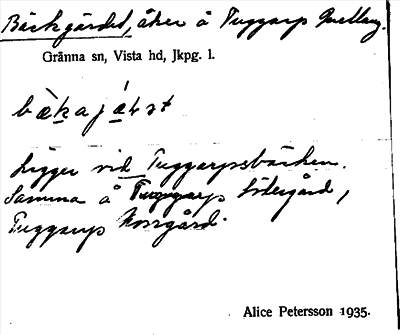 Bäckgärdet, åker å Tuggarp Mellang.
Gränna sn, Vista hd, Jkpg. l.
Ligger vid Tuggarpsbäcken.
Samma å Tuggarp Sörgård,
Tuggarp Norrgård.
Alice Petersson 1935.